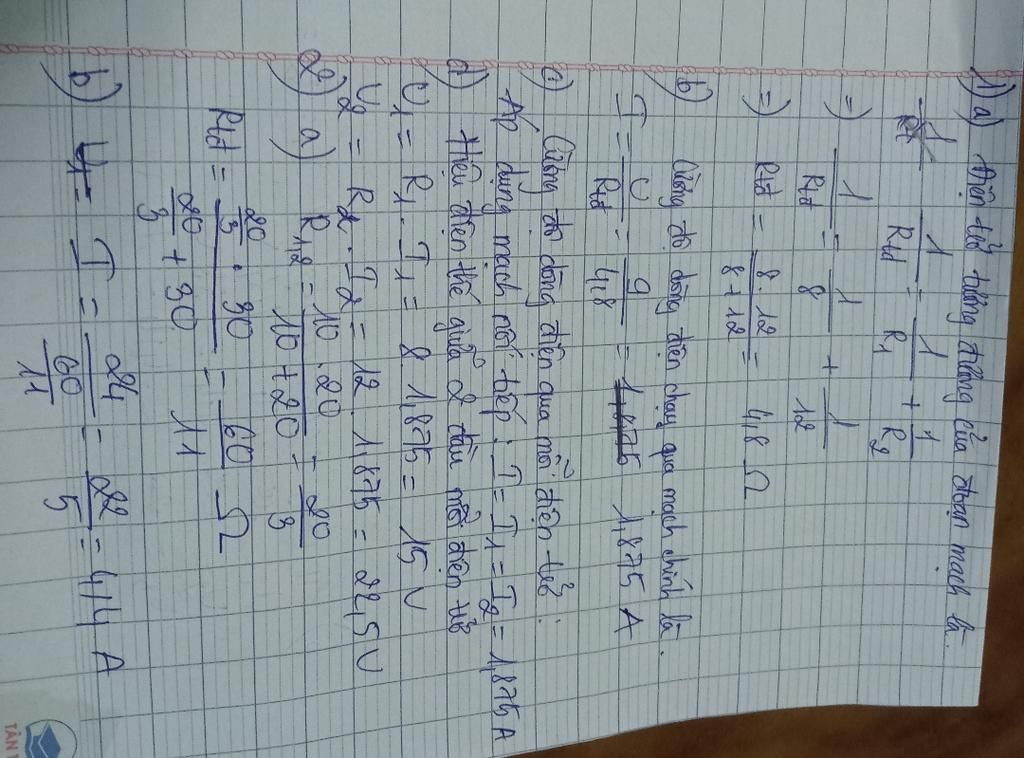 1) a) Điện trở tương đương của đoạn mạch là
1/Rtđ = 1/R1 + 1/R2
=) 1/Rtđ = 1/8 + 1/12
=) Rtđ = 8.12/8+12 = 4,8 Ω
b) Cường độ dòng điện chạy qua mạch chính là.
I = U/Rtđ = 9/4,8 = 1,875 A
c) Cường độ dòng điện qua mỗi điện trở:
Áp dụng mạch nối tiếp: I = I1 = I2 = 1,875 A
d) Hiệu điện thế giữa 2 đầu mỗi điện trở
U1 = R1 . I1 = 8. 1,875 = 15 V
U2 = R2 . I2 = 12. 1,875 = 22,5 V
2) a) R1,2 = 10.20/10+20 = 20/3
Rtđ = 20/3 . 30 / 20/3 + 30 = 60/11 Ω
b) I = 24 / 60/11 = 22/5 = 4,4 A
TÂN T